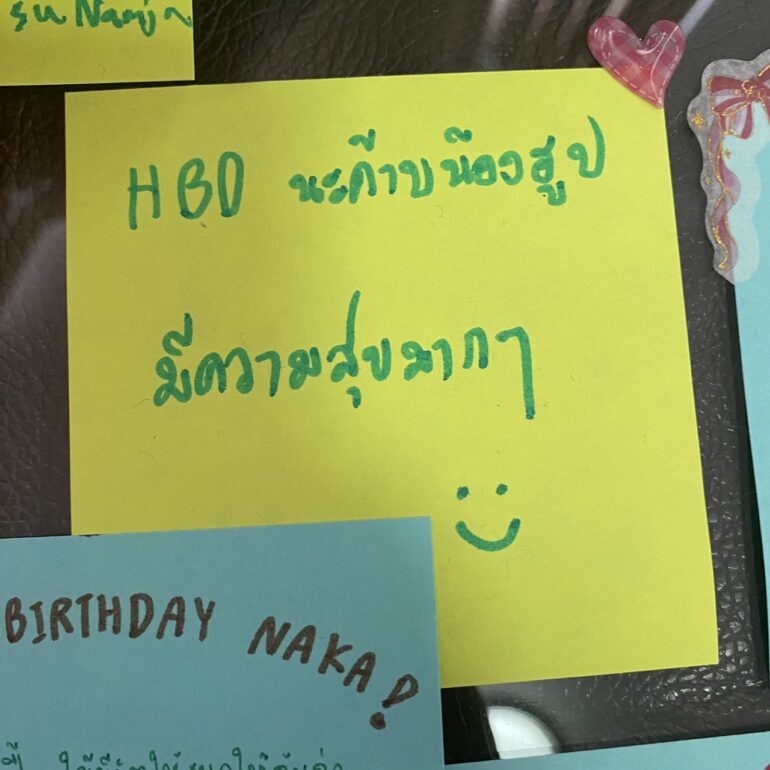 HBD นะค้าบน้องฮูป
มีความสุขมากๆ
BIRTHDAY NAKA!